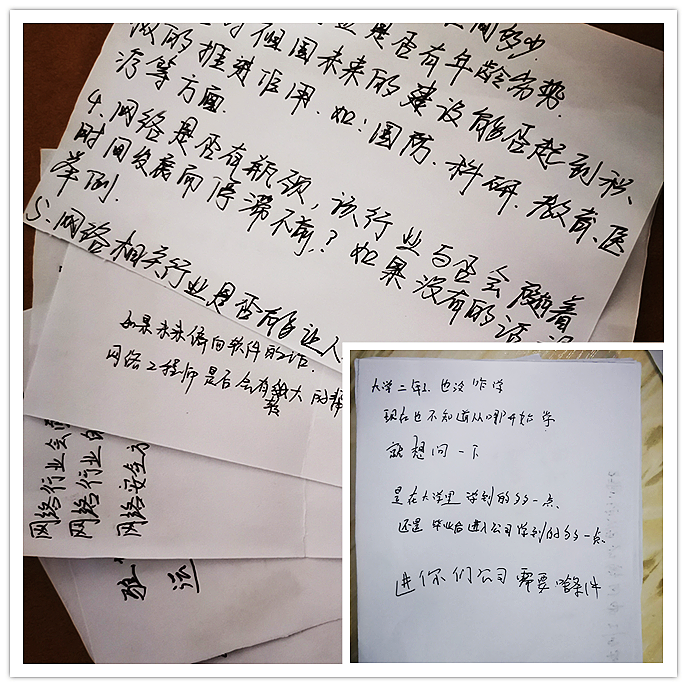 业是否有年龄劣势.
对祖国未来的建设能否起到积
极的推进作用.如:国防.科研.教育.医
疗等方面.
4.网络是否有瓶颈,该行业与否会随着
时间发展而停滞不前?如果没有的话
举例.
5.网络相关行业是否能够让人
如果未来偏向软件的话.
网络工程师是否会有极大的帮
网络行业会
网络行业的
网络安全方
大学二年了也没咋学
现在也不知道从哪开始学
就想问一下
是在大学里学到的多一点
还是毕业后进入公司学到的多一点.
进你们公司需要啥条件